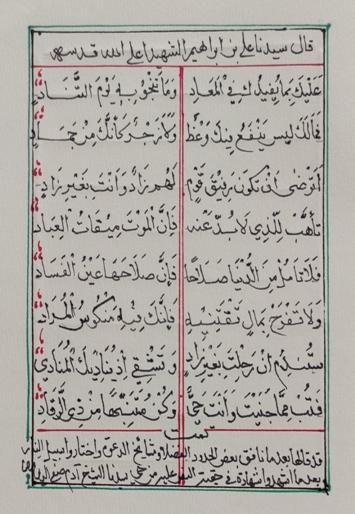 قال سيدنا علي بن ابراهيم الشهيد اعلى الله قدسه
عَلَيْكَ بِمَا يُفِيْدُكَ فِي الْمَعَادِ وَمَا تَنْجُوْ بِهِ يَوْمَ التَّنَادِ
فَمَالَكَ لَيْسَ يَنْفَعُ فِيْكَ وَعْظٌ وَلَا زَجْرٌ كَأَنَّكَ مِنْ جَمَادٍ
أَتَرْضَى أَنْ تَكُوْنَ رَفِيْقَ قَوْمٍ لَهُمْ زَادٌ وَأَنْتَ بِغَيْرِ زَادٍ
تَأَهَّبْ لِلَّذِيْ لَابُدَّ عَنْهُ فَإِنَّ الْمَوْتَ مِيْقَاتُ الْعِبَادِ
وَلَا تَأْمُلْ مِنَ الدُّنْيَا صَلَاحًا فَإِنَّ صَلَاحَهَا عَيْنُ الْفَسَادِ
وَلَا تَفْرَحْ بِمَالٍ تَقْتَنِيْهِ فَإِنَّكَ فِيْهِ مَنْكُوْسُ الْمُرَادِ
سَتَنْدَمُ إِنْ رَحَلْتَ بِغَيْرِ زَادٍ وَتَشْقَى إِذْ يُنَادِيْكَ الْمُنَادِيْ
فَتُبْ مِمَّا جَنَيْتَ وَأَنْتَ حَيٌّ وَكُنْ مُتَنَبِّهًا مِنْ ذِي الرُّقَادِ
تمت
قد قالها بعد ما نافق بعض الحدود الفضلاء
بعد ما اشهدوا شهادة في سيدنا الشيخ آدم صفي الدين